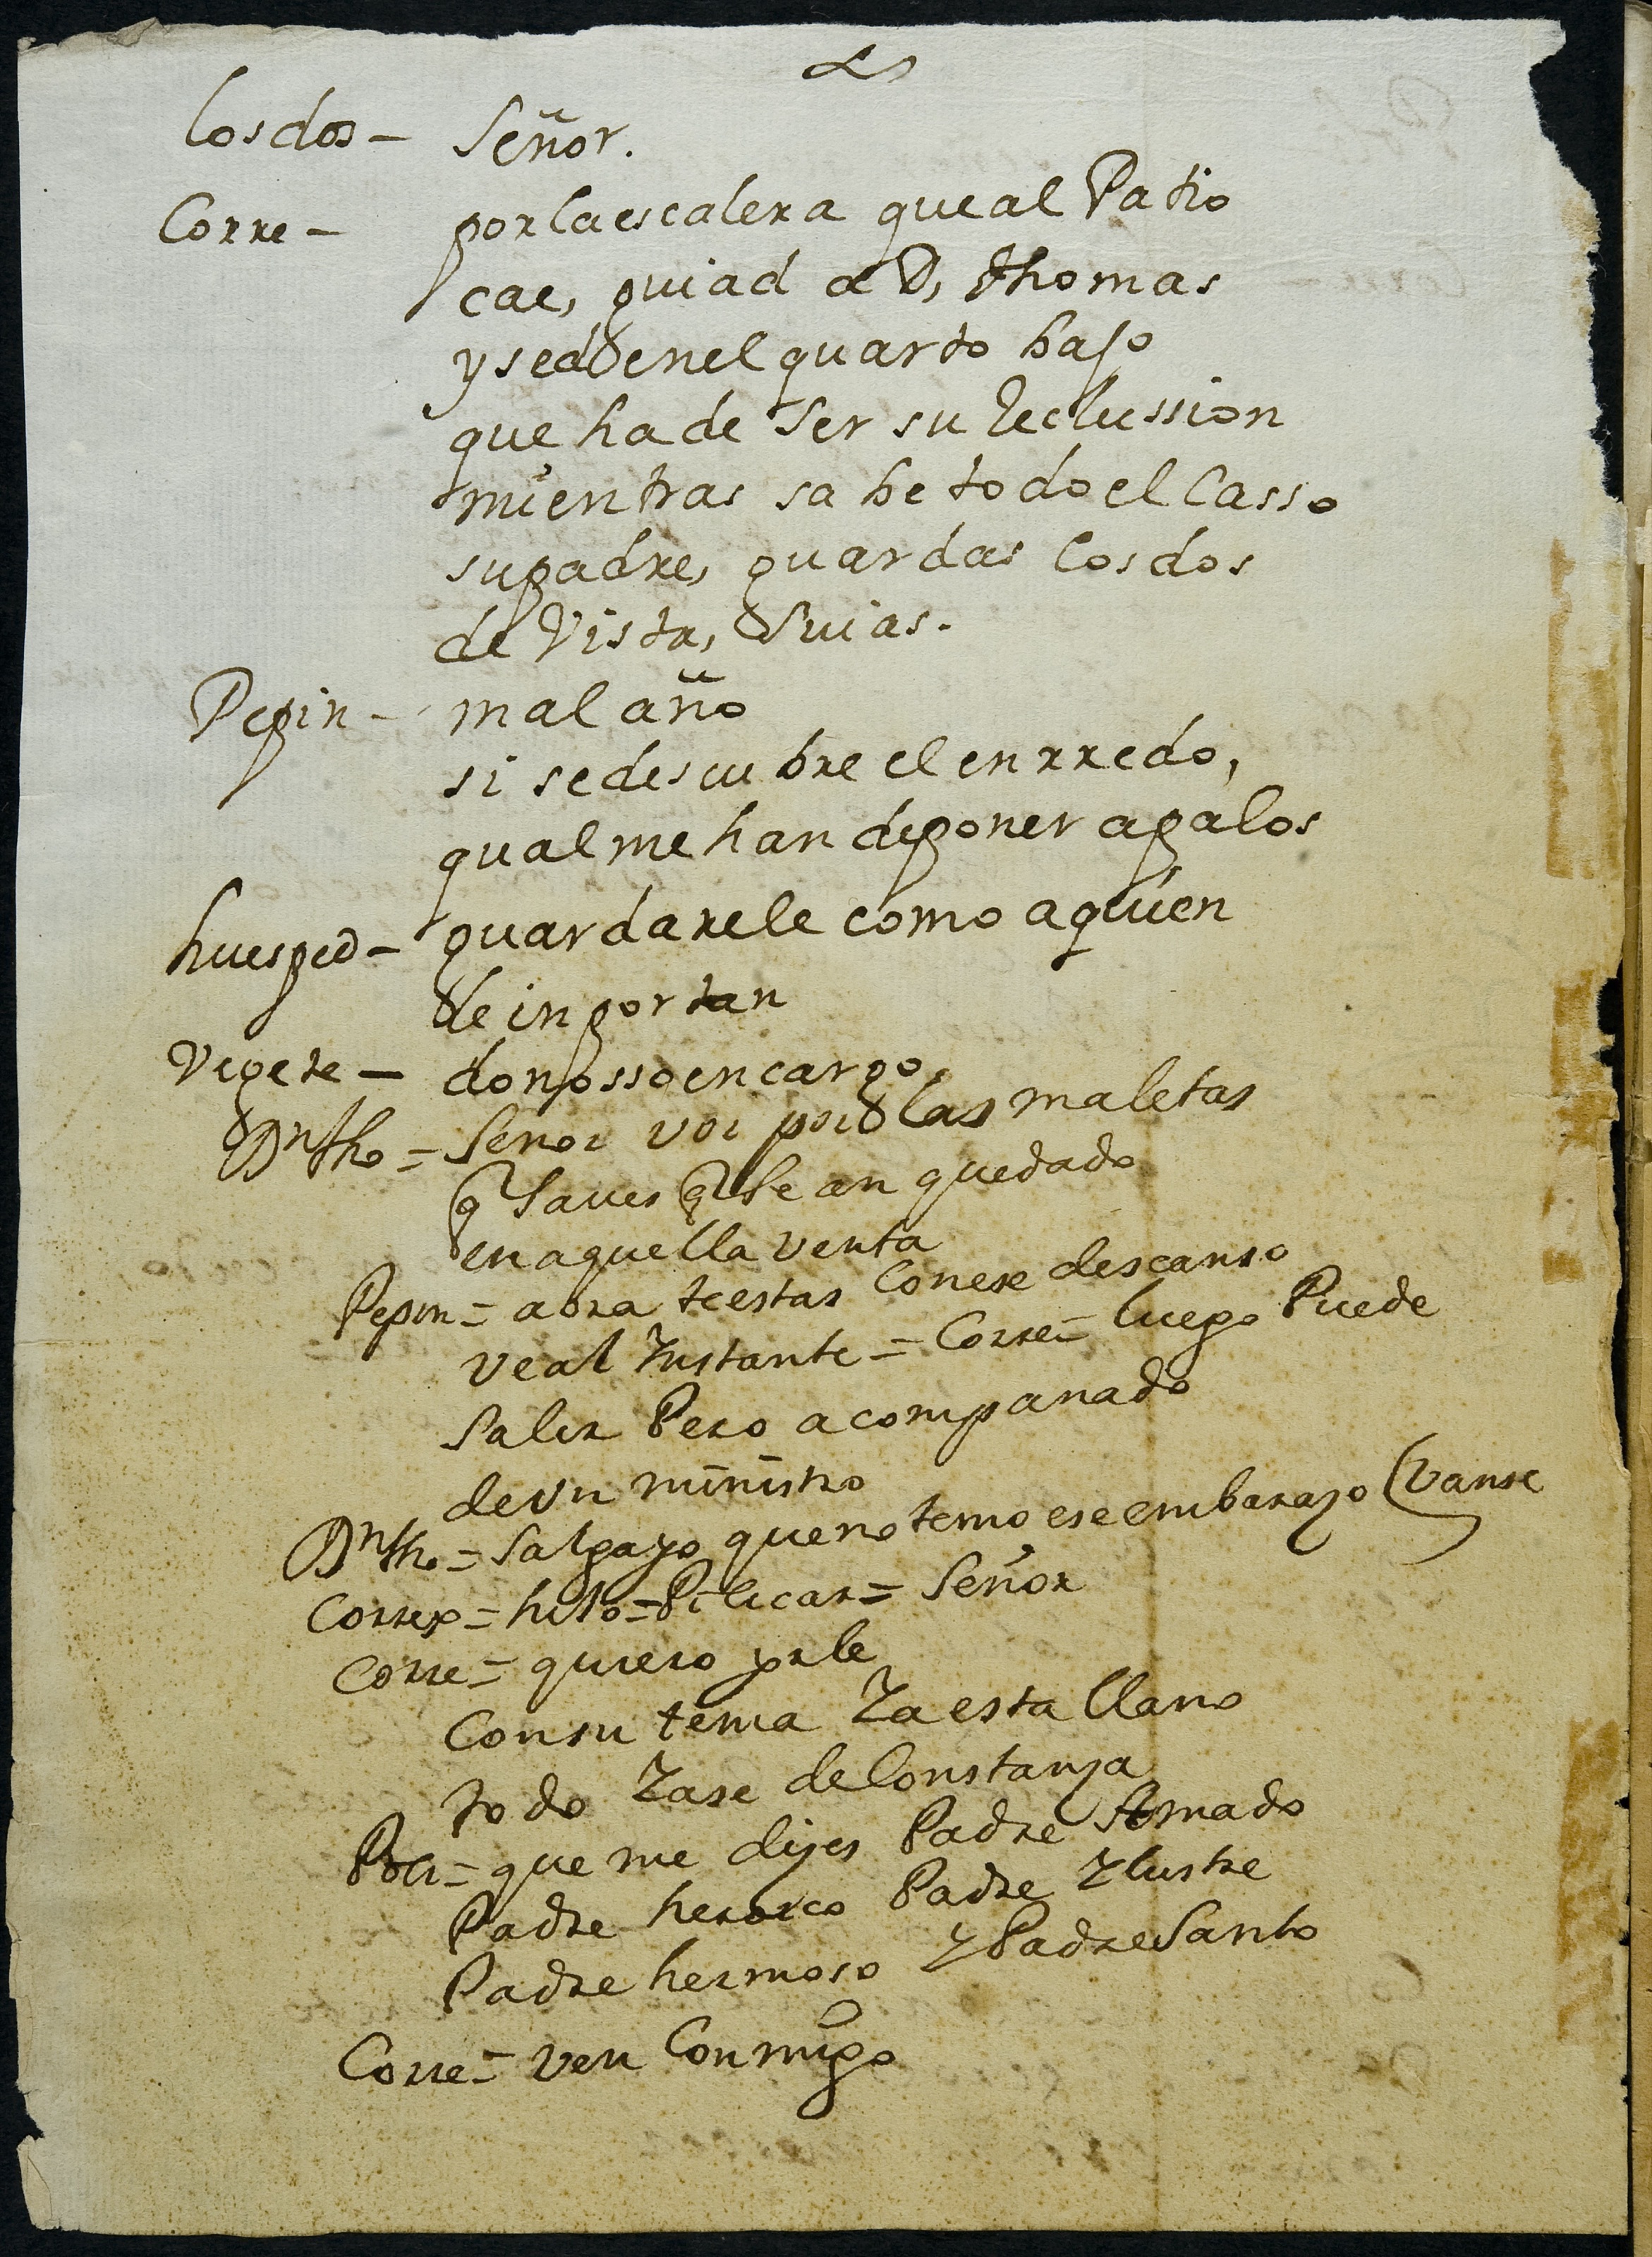 los dos - Señor.
Corre - por la escalera que al Patio
cae, guiad a D, thomas
y sea en el quarto bajo
que ha de ser su reclussion
mientras sabe todo el Casso
su padre, guardas los dos
de Vista, Guias.
Pepin - mal año
si se descubre el enrredo,
qual me han de poner a palos
huesped - guardarele como a quien
le inportan
Vegete - donosso encargo,
Dn tho = Señor voi por las maletas
q saves q se an quedado
en aquella venta
Pepin = aora te estas Con ese descanso
ve al Instante = Corre = luego Puede
salir Pero acompanado
de un ministro
Dn tho = salga yo que no temo ese embarazo (vanse
Correx = hijo = Policar = Señor
Corre = quiero
Con su tema Ya esta llano
todo Yase de Constanza
Poli = que me dizes Padre Amado
Padre heroico Padre Ylustre
Padre hermoso Y Padre Santo
Corre = ven Conmigo